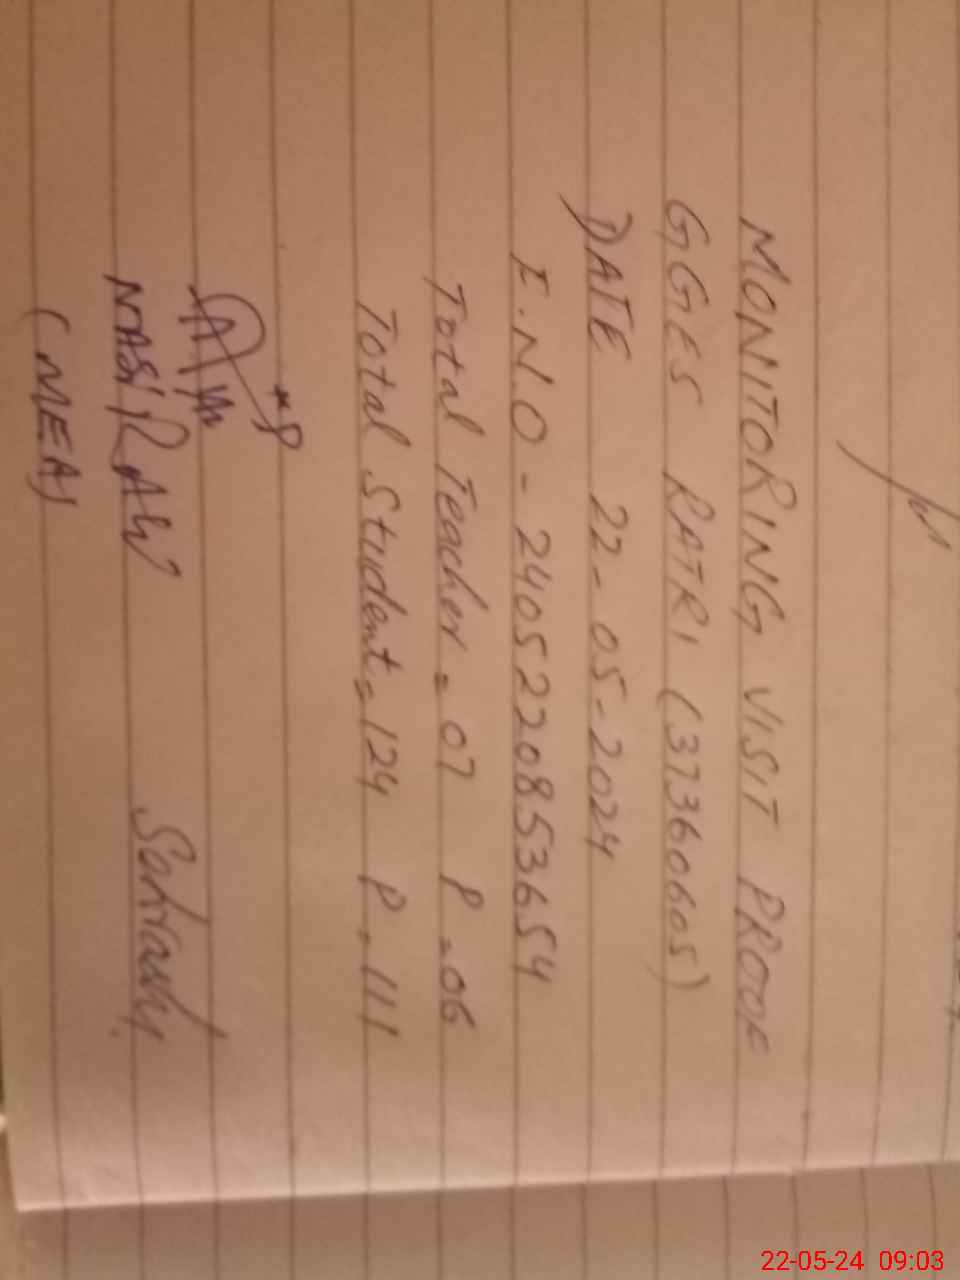 MONITORING VISIT PROOF
GGES RATRI (37360605)
DATE 22-05-2024
I.N.O - 240522085 3654
Total Teacher = 07 P - 06
Total Student = 124 P - 111
NASIR
(MEA)
22-05-24 09:03